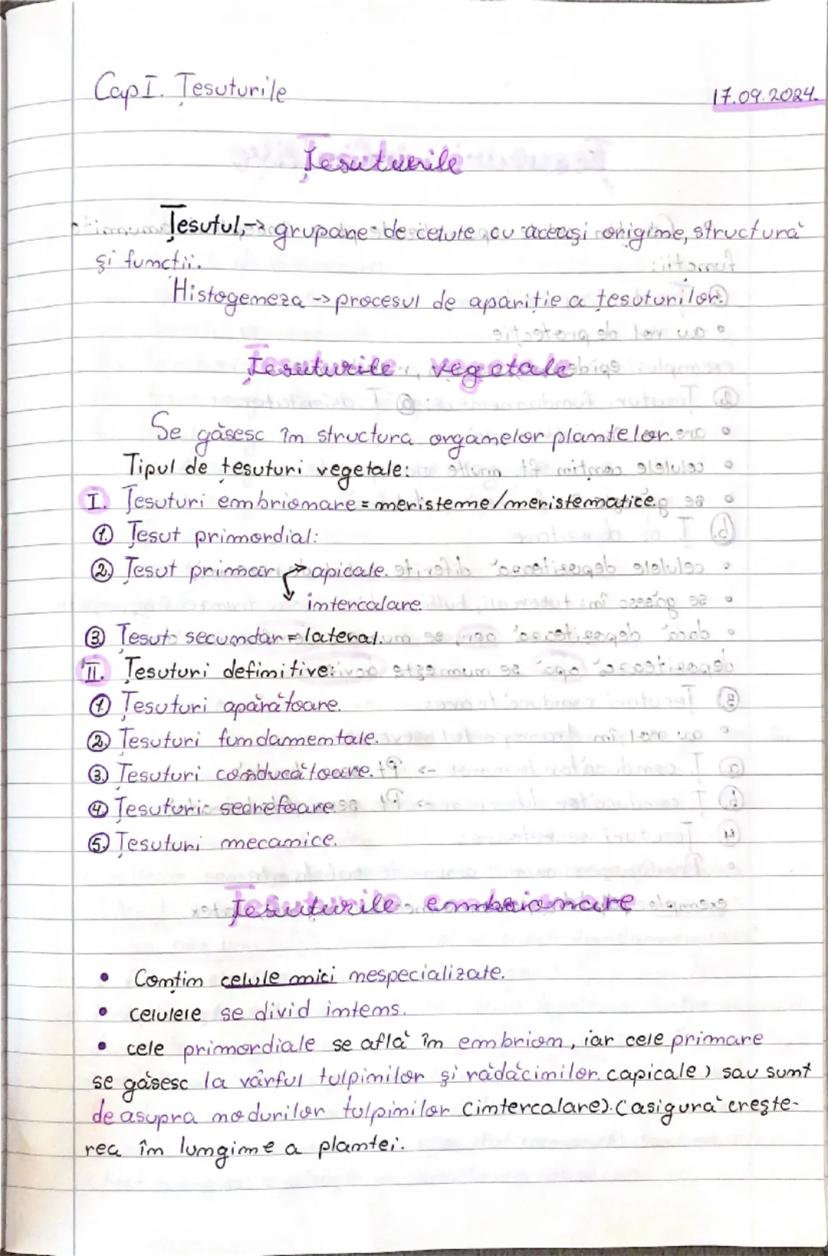 Cap I. Țesuturile
17.09.2024.
Țesuturile
Țesutul, -> grupare de celule cu aceași origine, structură
și funcții.
Histogeneza -> procesul de apariție a țesuturilor.
Țesuturile vegetale
Se găsesc în structura organelor plantelor.
Tipul de țesuturi vegetale:
I. Țesuturi embrionare = meristeme/meristematice.
① Țesut primordial:
② Țesut primar -> apicale.
intercalare.
③ Țesut secundar = lateral.
II. Țesuturi definitive:
① Țesuturi apărătoare.
② Țesuturi fundamentale.
③ Țesuturi conducătoare.
④ Țesuturi secretoare.
⑤ Țesuturi mecanice.
Țesuturile embrionare
• Conțin celule mici nespecializate.
• celulele se divid intens.
• cele primordiale se află în embrion, iar cele primare
se găsesc la vârful tulpinilor și rădăcinilor (apicale) sau sunt
deasupra nodurilor tulpinilor (intercalare). (asigură crește-
rea în lungime a plantei.